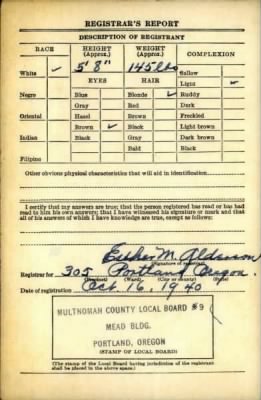 REGISTRAR'S REPORT
DESCRIPTION OF REGISTRANT
RACE HEIGHT (Approx.) WEIGHT (Approx.) COMPLEXION
White ✓ 5' 8" 145 lbs Sallow
EYES HAIR Light ✓
Negro Blue Blonde ✓ Ruddy
Gray Red Dark
Oriental Hazel Brown Freckled
Brown ✓ Black Light brown
Indian Black Gray Dark brown
Bald Black
Filipino
Other obvious physical characteristics that will aid in identification
I certify that my answers are true; that the person registered has read or has had
read to him his own answers; that I have witnessed his signature or mark and that
all of his answers of which I have knowledge are true, except as follows:
Esther M. Alderson
(Signature of registrar)
Registrar for 305 Portland Oregon.
(Precinct) (Ward) (City or county) (State)
Date of registration Oct. 16, 1940
MULTNOMAH COUNTY LOCAL BOARD #9
MEAD BLDG.
PORTLAND, OREGON
(STAMP OF LOCAL BOARD)
(The stamp of the Local Board having jurisdiction of the registrant
shall be placed in the above space.)